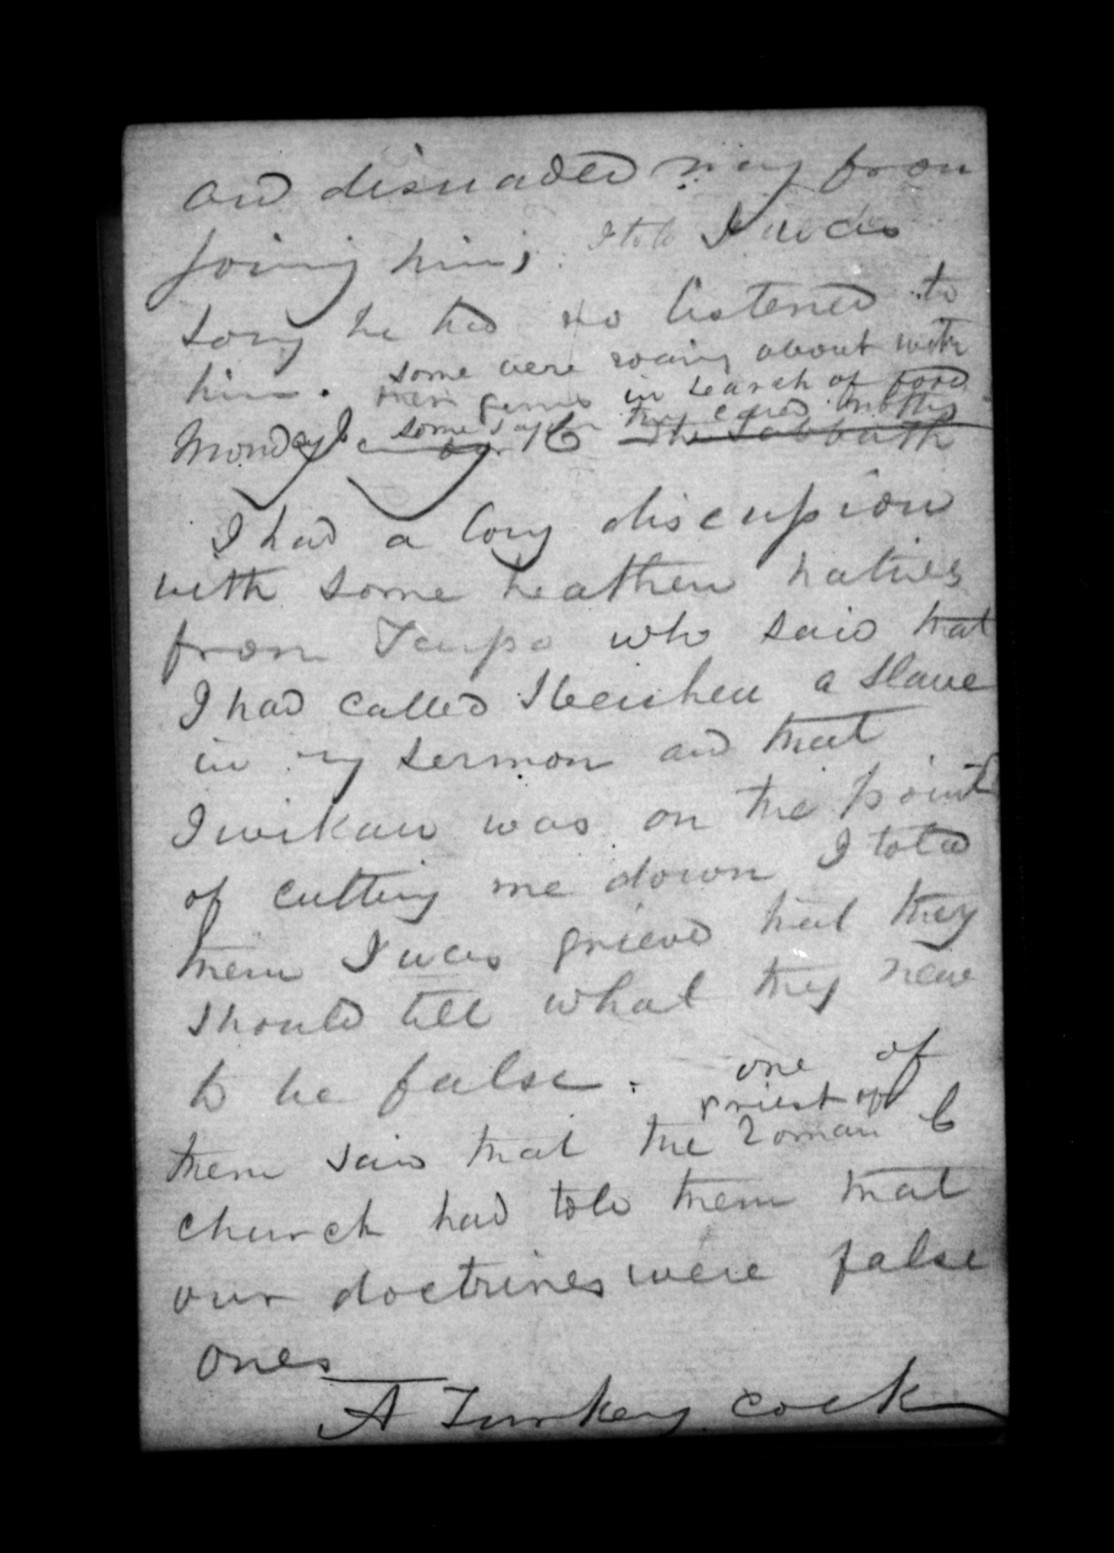 and disuaded many from
joining him; I told I was
sory he had so listened to
him. some were roaming about with
their guns in search of food
some say they called nothing
Monday 16 The Sabbath
I had a long discussion
with some heathen natives
from Taupo who said that
I had called Heuheu a slave
in my sermon and that
Iwikau was on the point
of cutting me down I told
them I was grieved that they
should tell what they new
to be false. one of
priest of
them said that the Roman C
church had told them that
our doctrines were false
ones
A Turkey cock